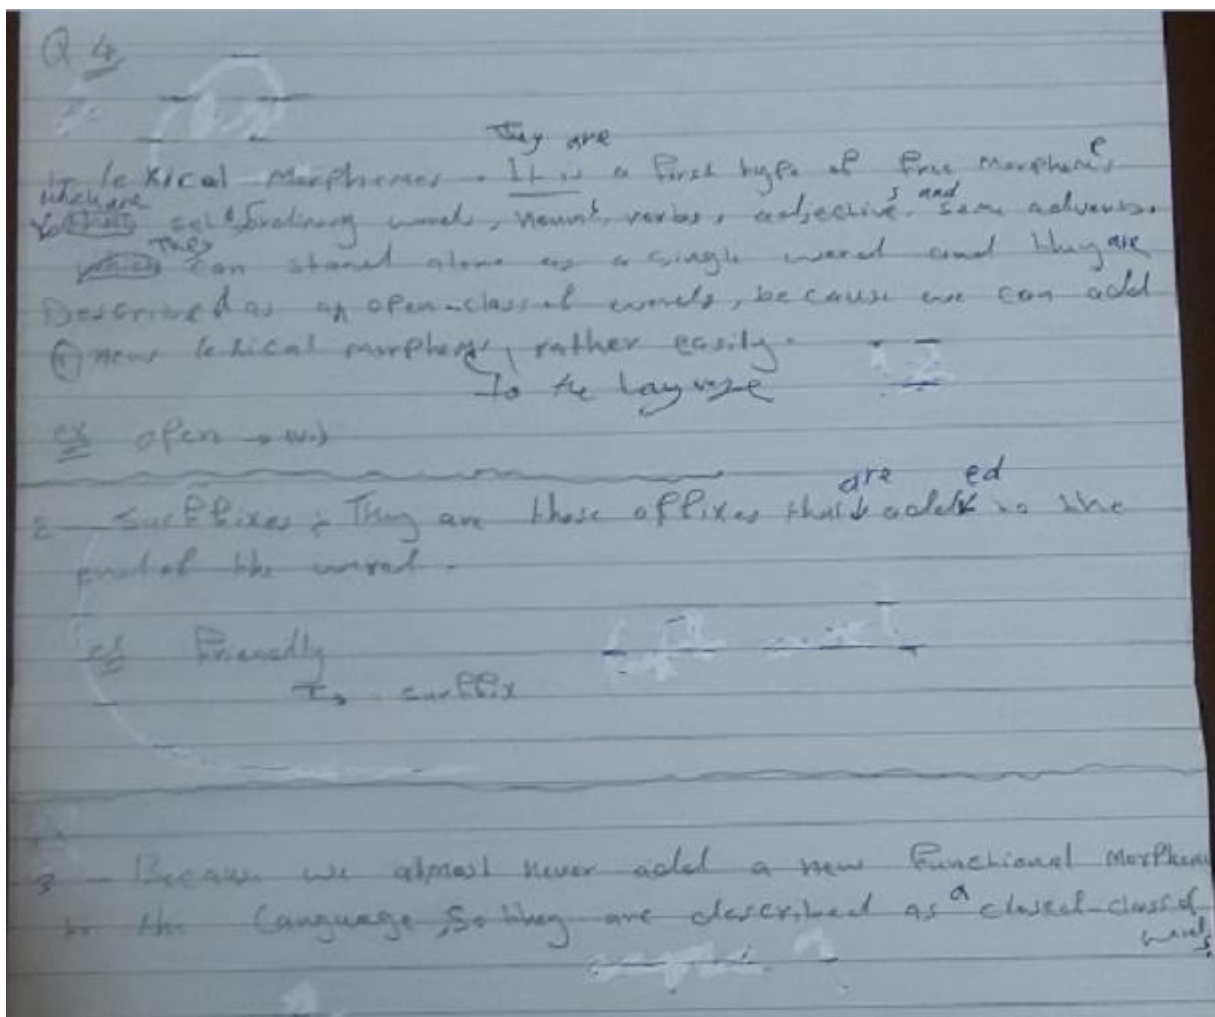 Q 4
They are
1- lexical Morphemes. It is a first type of free Morpheme
which are
set of ordinary words, nouns, verbs, adjectives, and some adverbs.
which They can stand alone as a single word and they are
Described as an open-class of words, because we can add
new lexical morpheme, rather easily.
To the Language
ex open
are ed
2- Surffixes : They are those affixes that add to the
end of the word.
ex Friendly
surffix
3- Because we almost never add a new Functional Morpheme
to the Language, So they are described as a closed-class of
words.